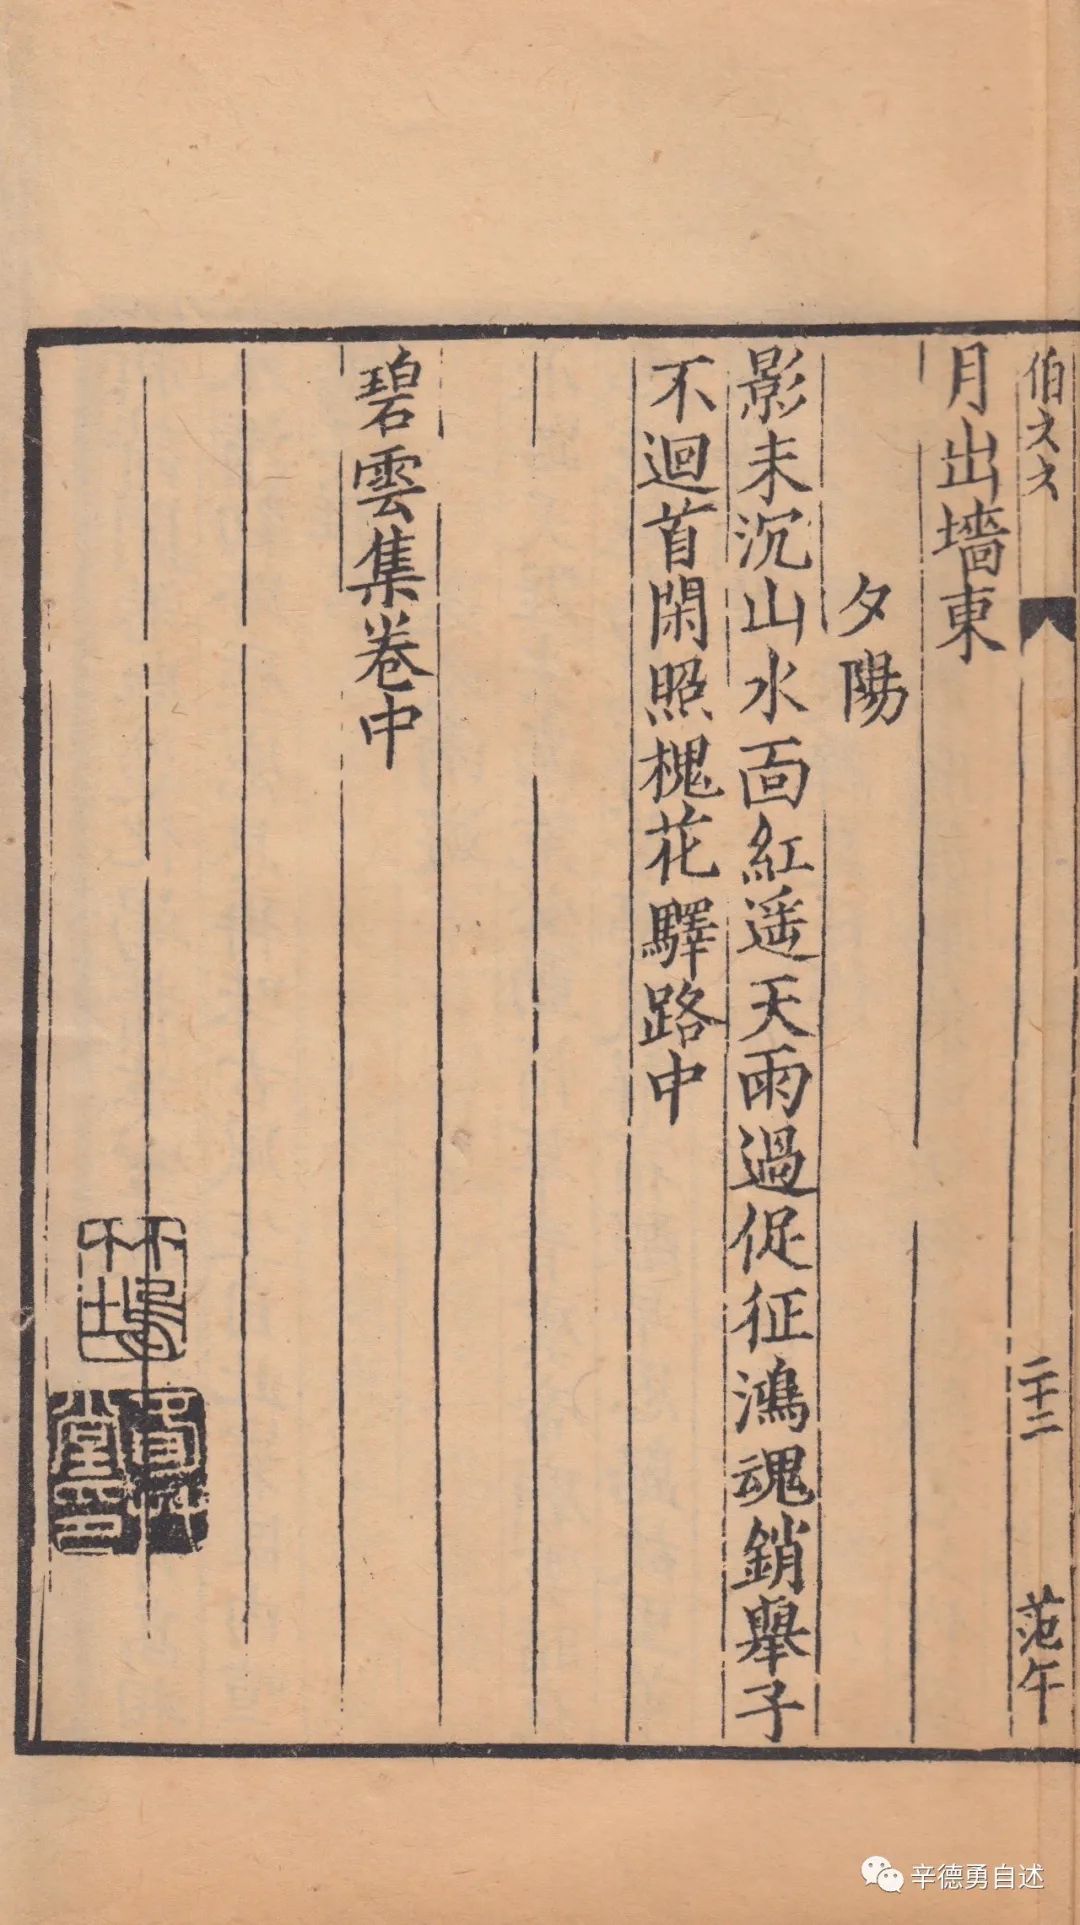 伯
二十二
范午
月出墻東
夕陽
影未沉山水面紅遥天雨過促征鴻魂銷舉子
不迴首閑照槐花驛路中
碧雲集卷中
辛德勇自述